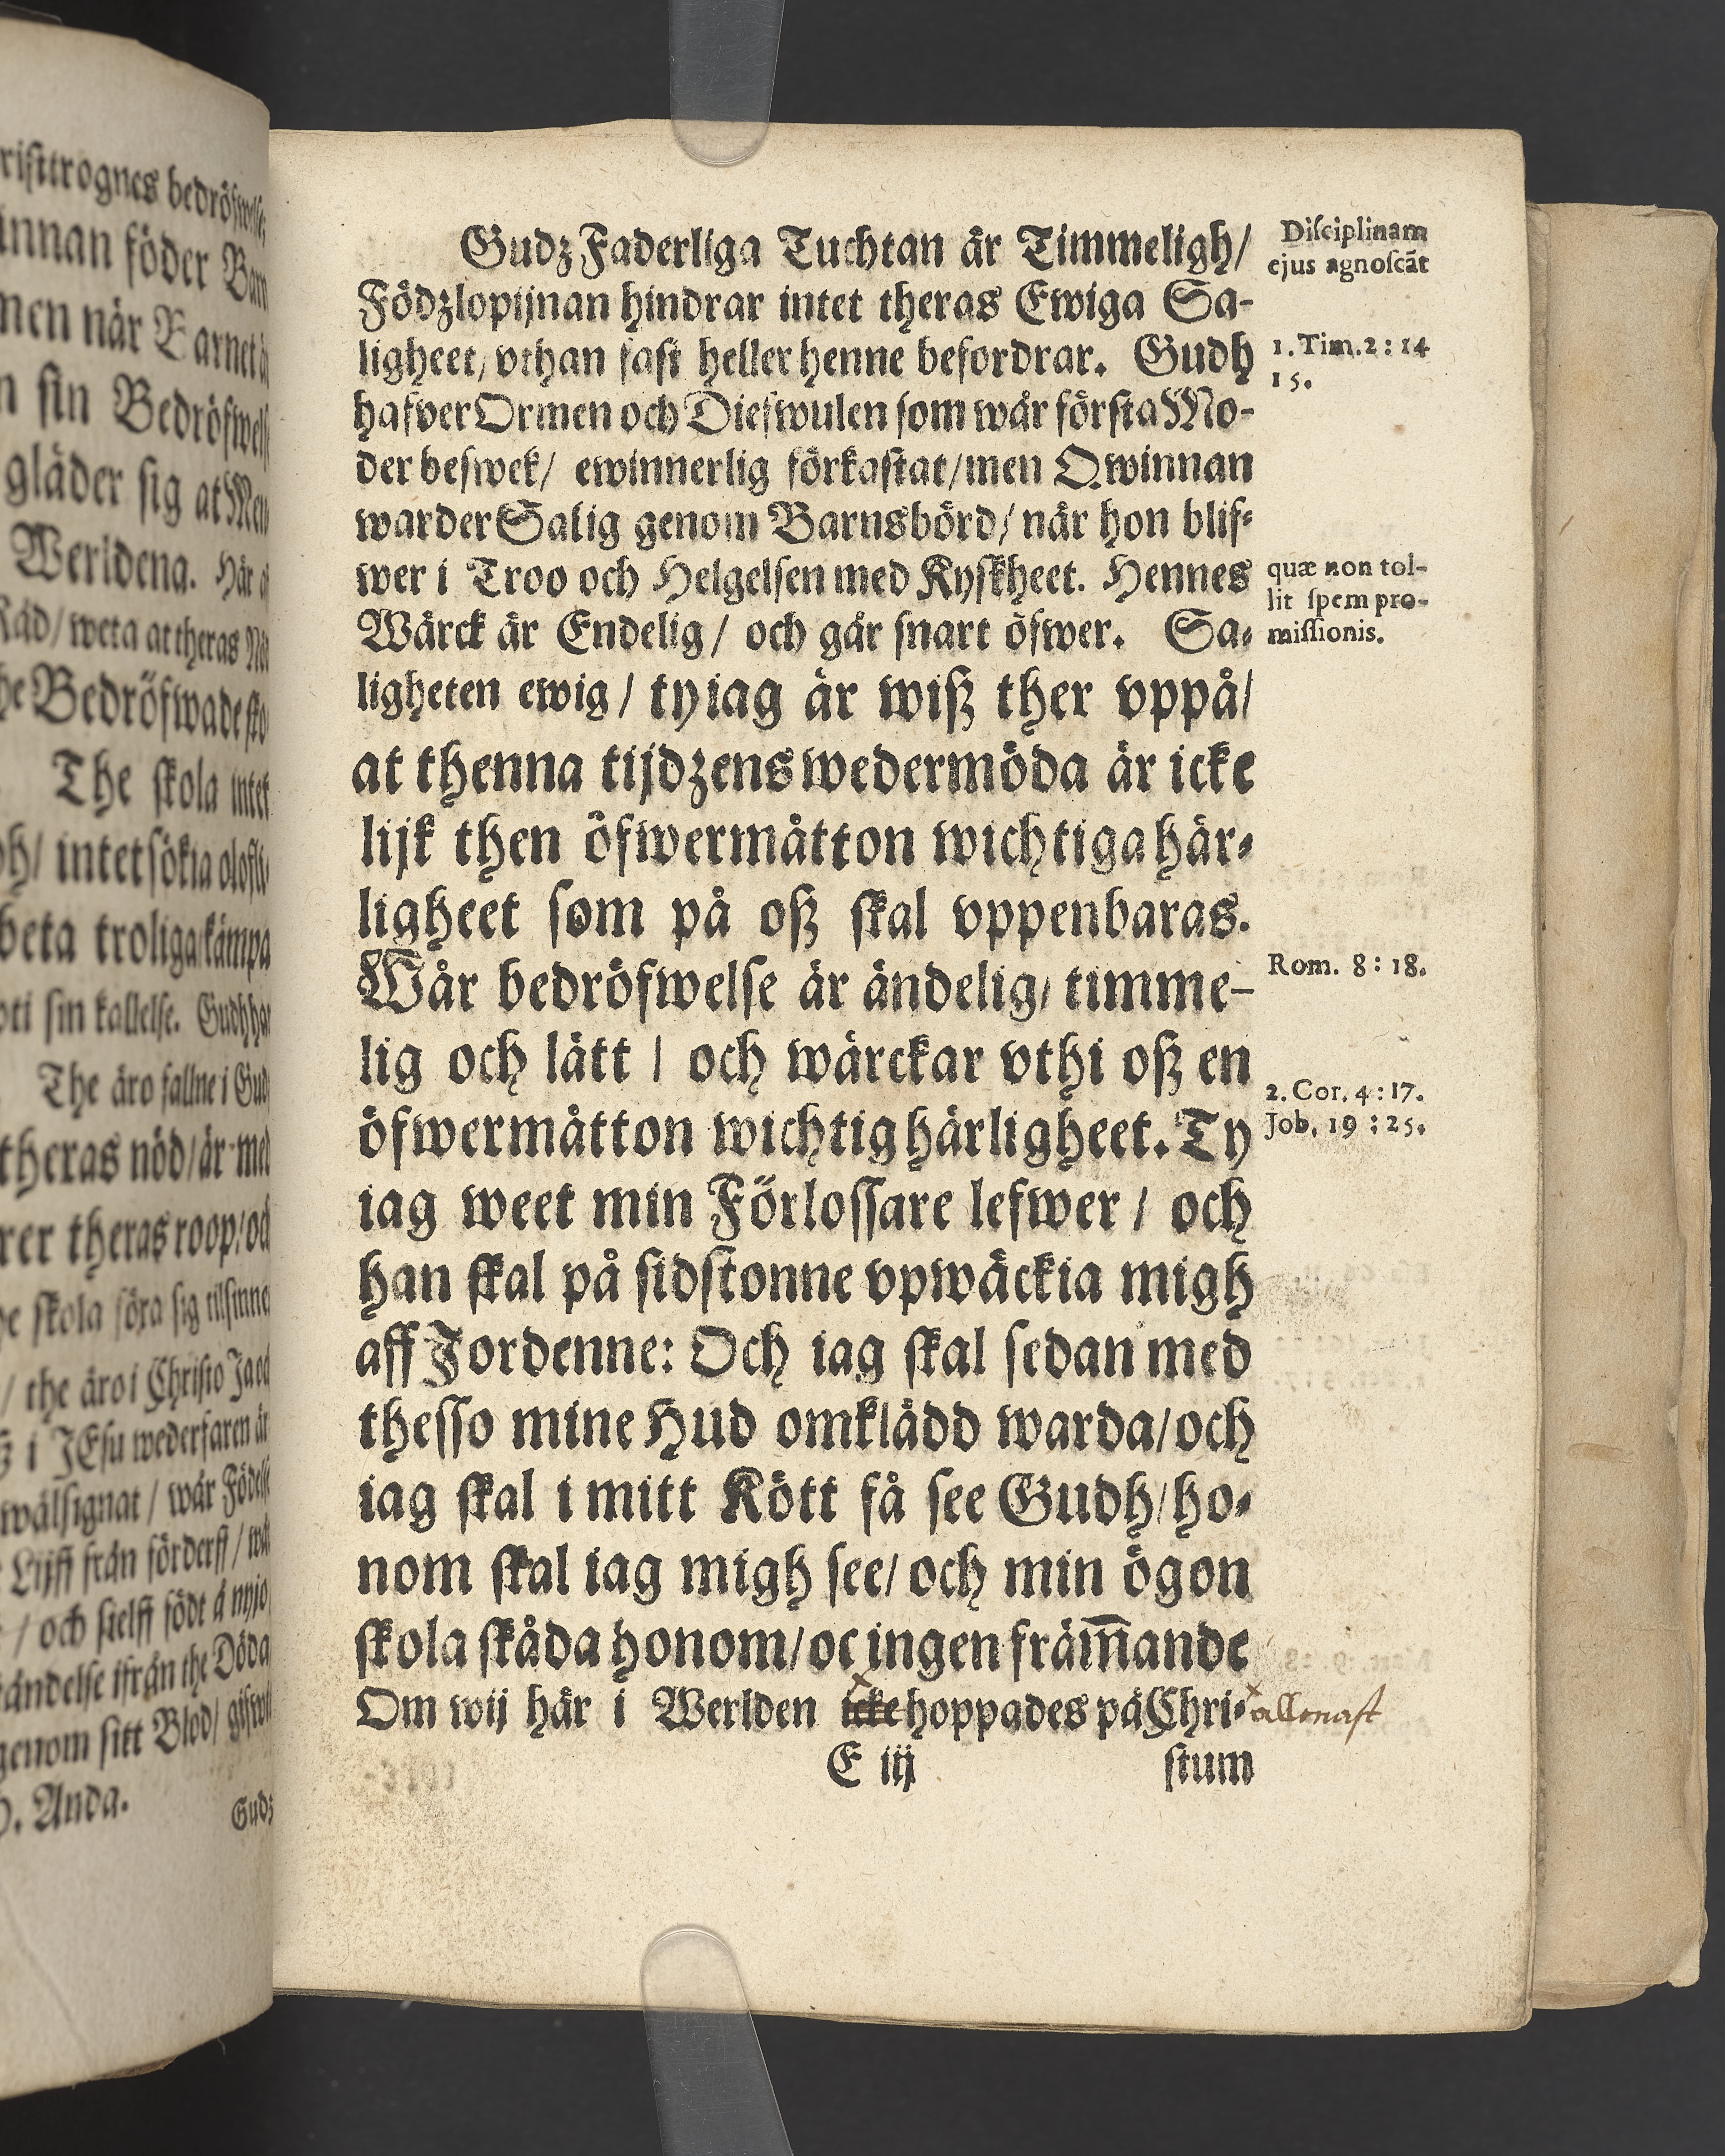 risttrognes bedröfwelse
innan föder Barn
men når Barnet
n sin Bedröfwels
gläder sig at Men
Werldena. Här
Råd/ weta at theras
he Bedröfwade
The skola intet
oh/ intet sökia
beta troliga/kämpa
oti sin kallelse. Gudh
The äro fallne i Gud
theras nöd/är med
rer theras roop/oc
he skola föra sig tilsinne
/ the äro i Christo
i JEsu wederfaren är
wälsignat / wår Födelse
Lijff från förderff /
/ och sielff födt å nyio
ändelse ifrån the Döda
genom sitt Blod/
Anda.
Gudz
Gudz Faderliga Tuchtan är Timmeligh/
Födzlopijnan hindrar intet theras Ewiga Sa-
ligheet/ vthan fast heller henne befordrar. Gudh
hafver Ormen och Diefwulen som wår första Mo-
der beswek/ ewinnerlig förkastat/men Qwinnan
warder Salig genom Barnsbörd/ når hon blif-
wer i Troo och Helgelsen med Kyskheet. Hennes
Wärck är Endelig/ och går snart öfwer. Sa-
ligheten ewig/ ty iag är wiß ther vppå/
at thenna tijdzens wedermöda är icke
lijk then öfwermåtton wichtiga här-
ligheet som på oß skal vppenbaras.
Wår bedröfwelse är ändelig/ timme-
lig och lätt / och wärckar vthi oß en
öfwermåtton wichtig härligheet. Ty
iag weet min Förlossare lefwer / och
han skal på sidstonne vpwäckia migh
aff Jordenne: Och iag skal sedan med
thesso mine Hud omklädd warda/och
iag skal i mitt Kött få see Gudh/ho-
nom skal iag migh see/ och min ögon
skola skåda honom/oc ingen främ̄ande
Om wij här i Werlden icke hoppades på Chri-
E iij stum
Disciplinam
ejus agnoscāt
1. Tim. 2: 14
15.
quæ non tol-
lit spem pro-
missionis.
Rom. 8: 18.
2. Cor. 4: 17.
Job. 19: 25.
allenast